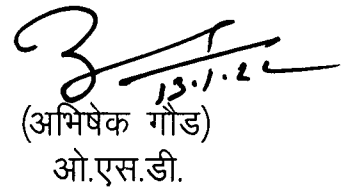 13.1.22
(अभिषेक गौड)
ओ.एस.डी.